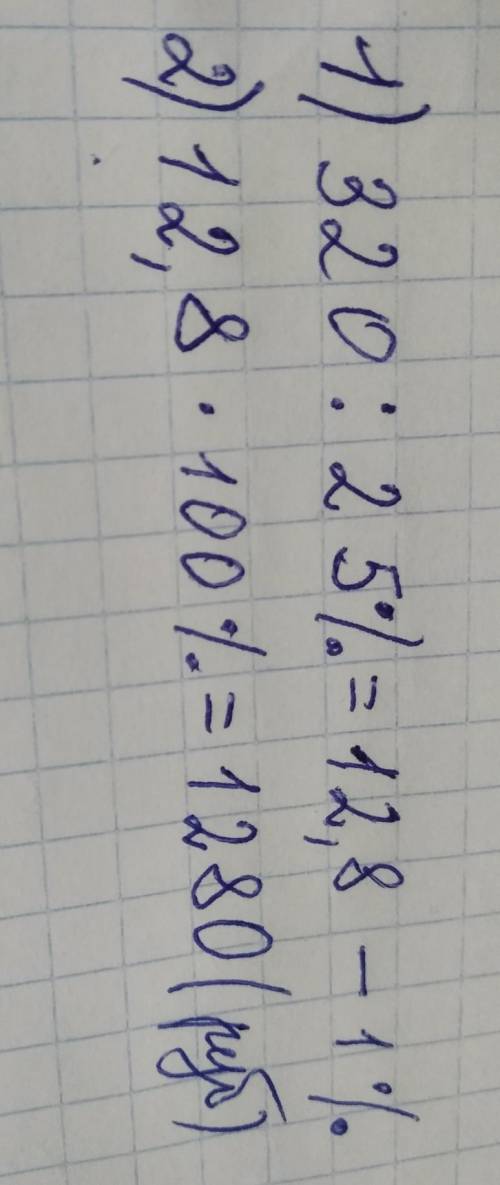 1) 320 : 25% = 12,8 - 1%
2) 12,8 · 100% = 1280 (руб)